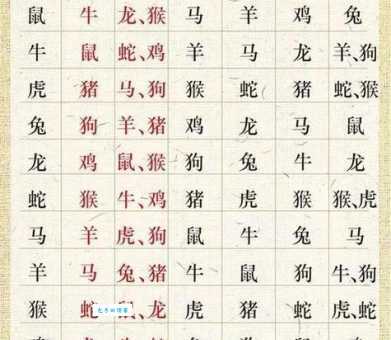 鼠 牛 龙、猴 马 羊 鸡 兔
牛 鼠 蛇、鸡 羊 马 龙 羊、狗
虎 猪 马、狗 猴 蛇 猪 蛇、猴
兔 狗 羊、猪 鸡 龙 马 鼠
龙 鸡 鼠、猴 狗 兔 牛 龙
蛇 猴 牛、鸡 猪 虎 猴 猴、虎
马 羊 虎、狗 鼠 牛 兔 马
羊 马 兔、猪 牛 鼠 狗 牛、狗
猴 蛇 、龙 虎 猪 蛇 虎、蛇